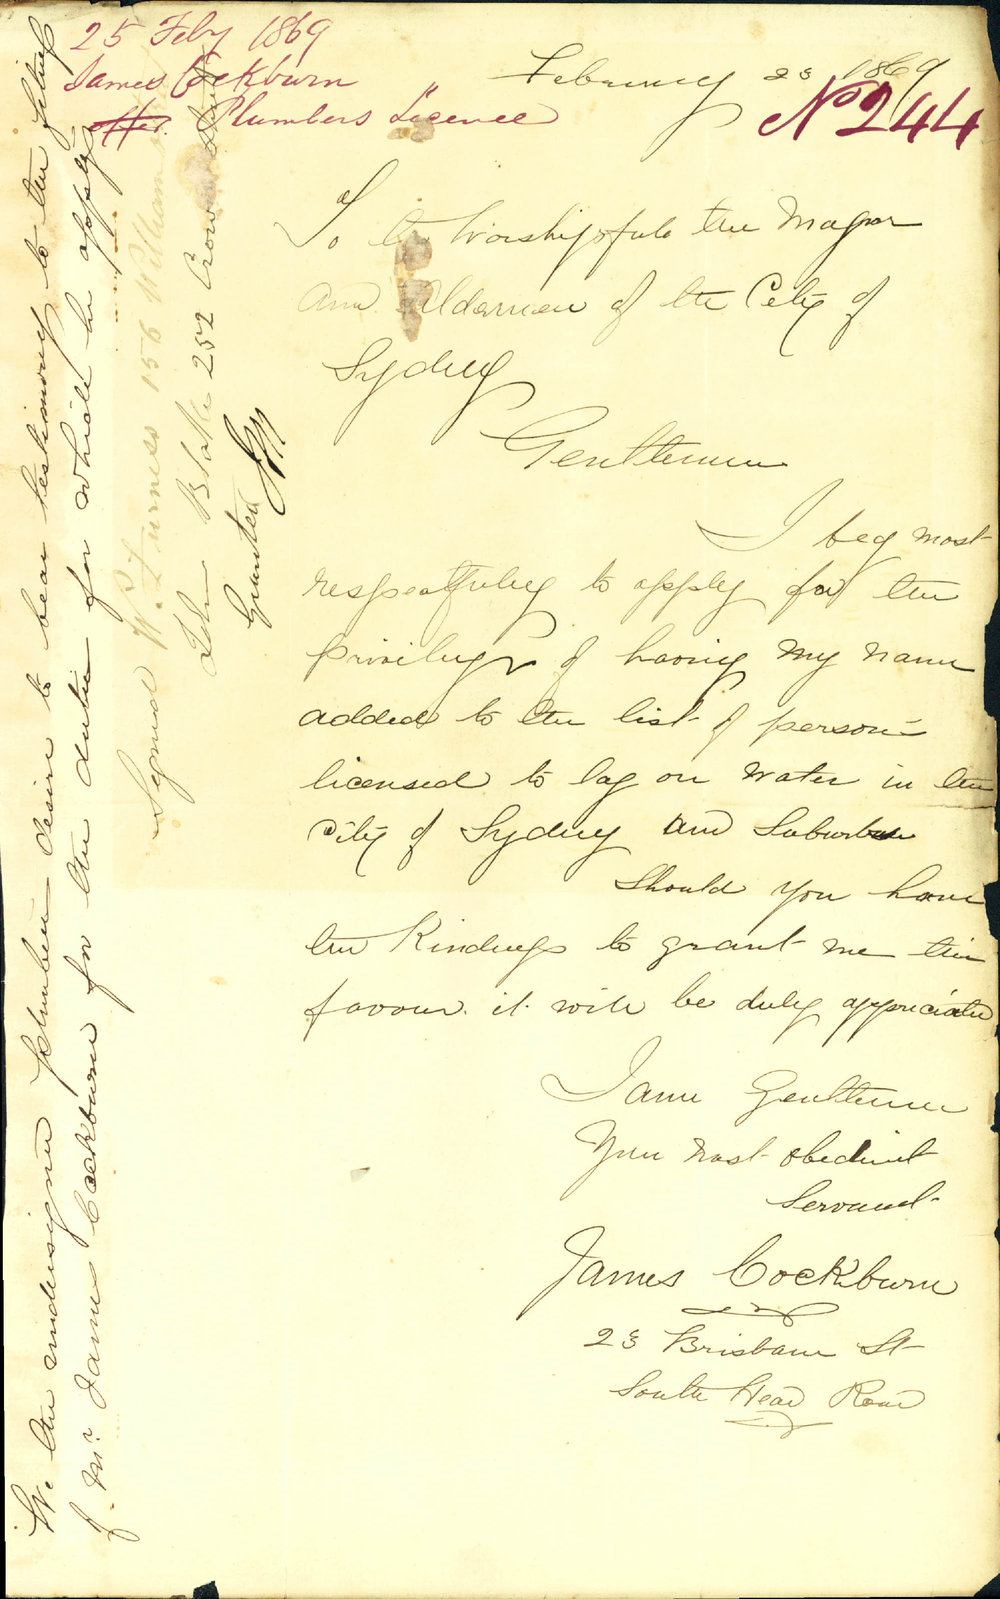 25 Feby 1869
James Cockburn
Plumbers Licence
No 244
February 23 1869
To the Worshipfull the Mayor
and Aldermen of the City of
Sydney
Gentlemen
I beg most
respectfully to apply for the
privilege of having my name
added to the list of persons
licensed to lay on water in the
City of Sydney and Suburbs
Should you have
the Kindness to grant me this
favour it will be duly appreciated
I am Gentlemen
Your most obedient
Servant
James Cockburn
23 Brisbane St
South Head Road
We the undersigned plumbers desire to bear testimony to the fitness
of Mr James Cockburn for the duties for which he applys
Signed W. Furness 156 William
John Blake 252 Crown Street
Granted